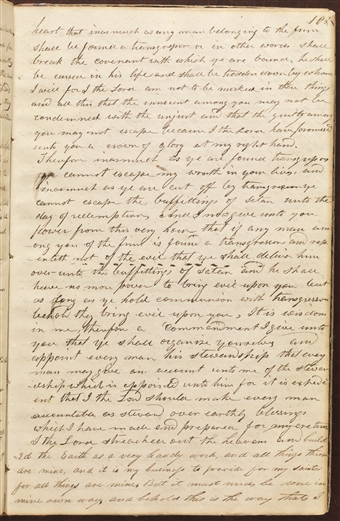 188
heart that inasmuch as any man belonging to the firm
shall be found a transgressor or in other words shall
break the covenant with which ye are bound, he shall
be cursed in his life and shall be trodden down by whom
I will for I the Lord am not to be mocked in these things
and all this that the innocent among you may not be
condemned with the unjust and that the guilty among
you may not escape because I the Lord have promised
unto you a crown of glory at my right hand.
Therefore inasmuch as ye are found transgressors
ye cannot escape my wrath in your lives and
inasmuch as ye are cut off by transgression ye
cannot escape the buffettings of satan unto the
day of redemption, And I now give unto you
power from this very hour that if any man am
ong you of the firm is found a transgressor and rep
enteth not of the evil that ye shall deliver him
over unto the buffettings of Satan and he shall
have no more power to bring evil upon you but
as long as ye hold communion with transgressors
behold they bring evil upon you, It is wisdom
in me therefore a Commandment I give unto
you that ye shall organize yourselves and
appoint every man his stewardship that every
man may give an account unto me of the stew
ardship which is appointed unto him for it is expedi
ent that I the Lord should make every man
accountable as steward over earthly blessings
which I have made and prepared for my creatures
I the Lord stretched out the heavens and build
ed the Earth as a very handy work, and all things therein
are mine, and it is my business to provide for my saints
for all things are mine But it must needs be done in
mine own way and behold this is the way that I